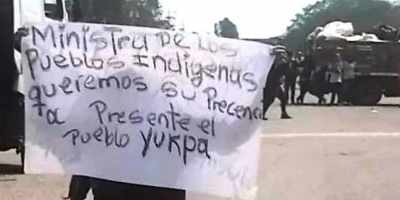 Ministra De Los
Pueblos Indigenas
queremos su Precencia
ta Presente el
Pueblo YUKPA